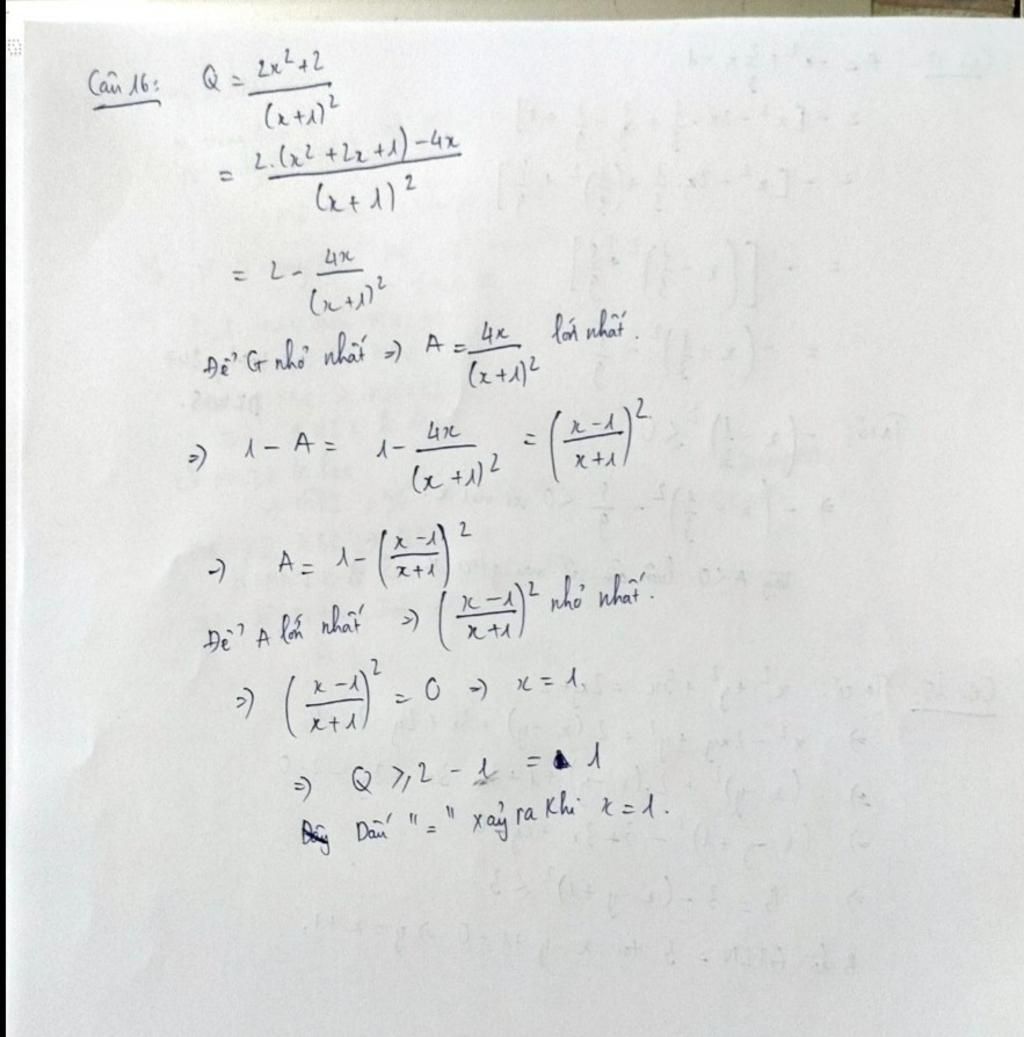 Câu 16: Q = \frac{2x^2+2}{(x+1)^2}
= \frac{2.(x^2+2x+1)-4x}{(x+1)^2}
= 2 - \frac{4x}{(x+1)^2}
Để G nhỏ nhất => A = \frac{4x}{(x+1)^2} lớn nhất.
=> 1 - A = 1 - \frac{4x}{(x+1)^2} = \left(\frac{x-1}{x+1}\right)^2
=> A = 1 - \left(\frac{x-1}{x+1}\right)^2
Để A lớn nhất => \left(\frac{x-1}{x+1}\right)^2 nhỏ nhất.
=> \left(\frac{x-1}{x+1}\right)^2 = 0 => x = 1.
=> Q ⩾ 2 - 1 = 1
Dấu "=" xảy ra khi x = 1.